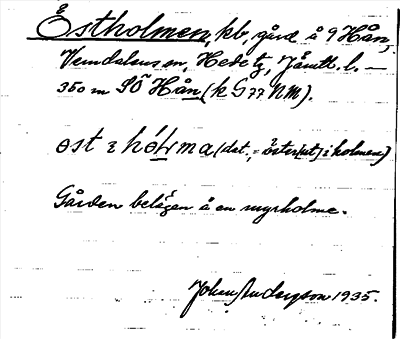 Östholmen, kb, gård å 9 Hån,
Vemdalens sn, Hede tg, Jämtl. l. —
350 m SÖ Hån (k G77 NM).
öst i hólma (dat., = öster(ut) i holmen)
Gården belägen å en myrholme.
Johan Anderzon 1935.